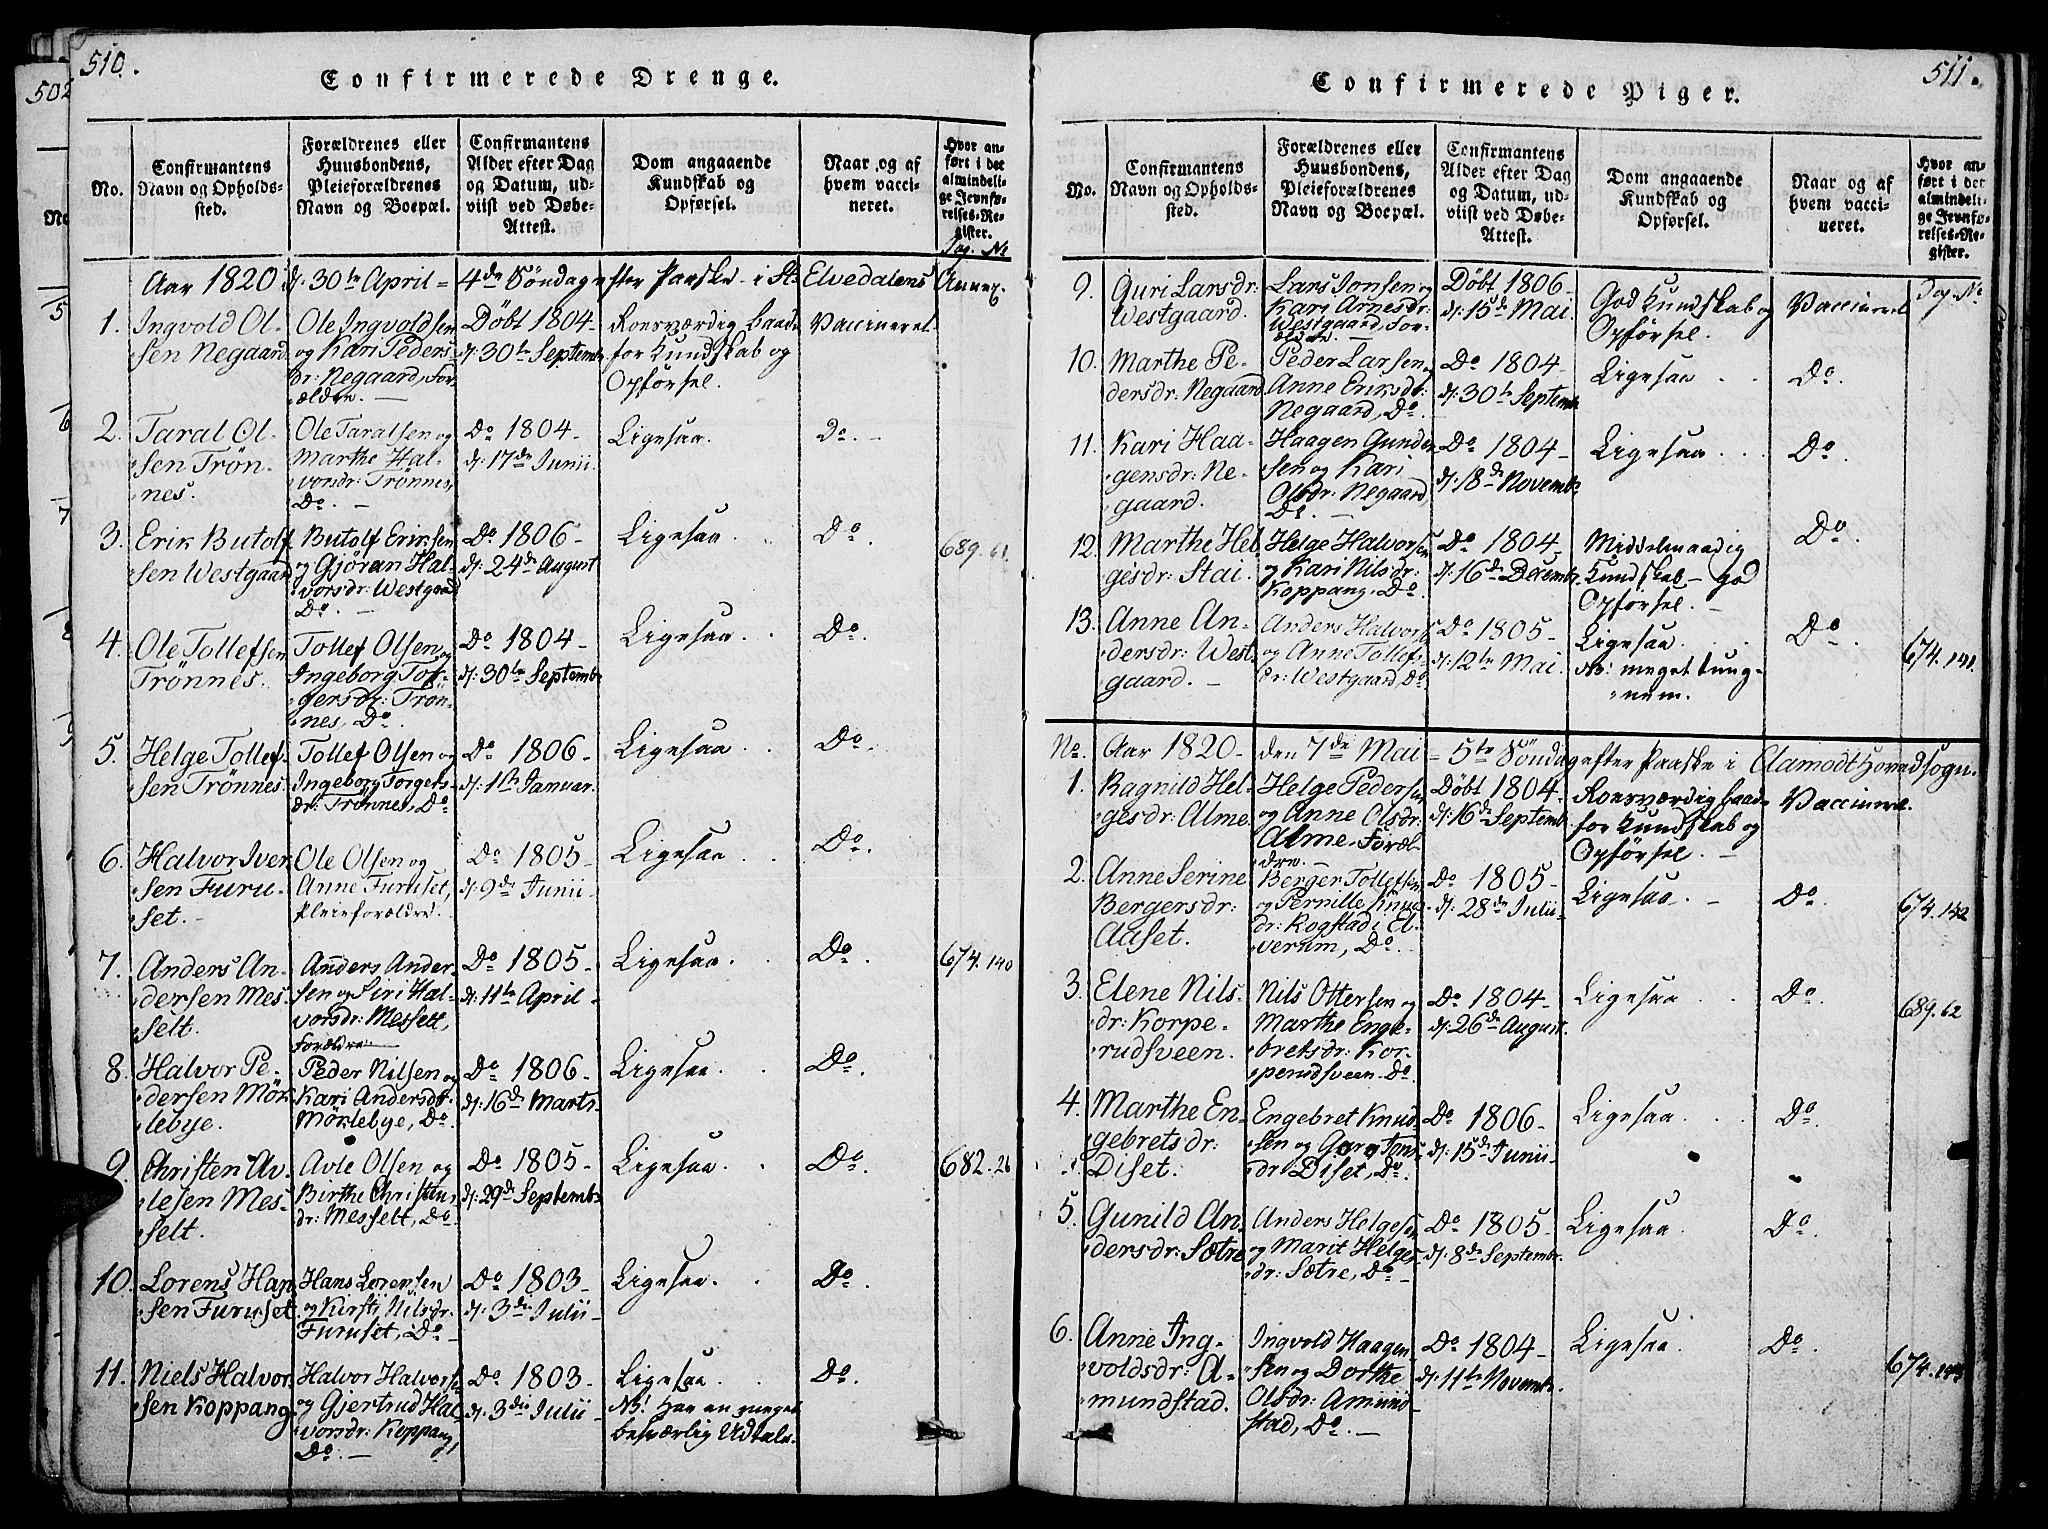 510.
Confirmerede Drenge.
No.
Confirmantens
Navn og Opholds-
sted.
Forældrenes eller
Huusbondens,
Pleieforældrenes
Navn og Boepæl.
Confirmantens
Alder efter Dag
og Datum, ud-
viist ved Døbe-
Attest.
Dom angaaende
Kundskab og
Opførsel.
Naar og af
hvem vacci-
neret.
Hvor an-
ført i det
almindeli-
ge Jevnfø-
relses-Re-
gister.
Pag. No
Aar 1820 d: 30te April = 4de Söndag efter Paaske i St Elvedalens Annex.
1. Ingvold Ol-
sen Negaard
Ole Ingvoldsen
og Kari Peders-
dr: Negaard, For-
ældre.
Döbt 1804-
d: 30te Septembr
Roesværdig baade
for Kundskab og
Opförsel.
Vaccineret.
2. Taral Ol-
sen Trön-
nes.
Ole Taralsen og
Marthe Hal-
vorsdr: Trönnes,
Do.
Do 1804-
d: 17de Junii.
Ligesaa.
Do.
3. Erik Butolf-
sen Westgaard
Butolf Eriksen
og Gjöran Hal-
vorsdr: Westgaard
Do.
Do 1806-
d: 24de August
Ligesaa
Do.
689. 61.
4. Ole Tollefsen
Trönnes.
Tollef Olsen og
Ingeborg Tor-
gersdr: Trön-
nes, Do.
Do 1804-
d: 30te Septembr
Ligesaa.
Do.
5. Helge Tollef-
sen Trönnes
Tollef Olsen og
Ingeborg Torgers-
dr: Trönnes, Do
Do 1806-
d: 1ste Januar.
Ligesaa
Do.
6. Halvor Iver-
sen Furu-
set.
Ole Olsen og
Anne Furuset,
Pleieforældre.
Do 1805-
d: 9de Junii
Ligesaa
Do.
7. Anders An-
dersen Mes-
selt.
Anders Ander-
sen og Siri Hal-
vorsdr: Messelt,
Forældre
Do 1805-
d: 11te April-
Ligesaa.
Do.
674. 140
8. Halvor Pe-
dersen Mök-
lebye.
Peder Nilsen og
Kari Andersdr
Möklebye, Do
Do 1806-
d: 16de Marts
Ligesaa
Do.
9. Christen Av-
lesen Mes-
selt.
Avle Olsen og
Birthe Christens-
dr: Messelt, Do
Do 1805-
d: 29de Septembr
Ligesaa
Do.
682. 26
10. Lorens Han-
sen Furuset
Hans Lorensen
og Kirsti Nilsdr:
Furuset, Do
Do 1803-
d: 3die Julii
Ligesaa.
Do.
11. Niels Halvor-
sen Koppang.
Halvor Halvorsen
og Gjertrud Hal-
vorsdr: Koppang,
Do.
Do 1803-
d: 3die Julii
Ligesaa.
NB: Har en meget
besværlig Udtale.
Do.
511.
Confirmerede Piger.
No.
Confirmantens
Navn og Opholds-
sted.
Forældrenes eller
Huusbondens,
Pleieforældrenes
Navn og Boepæl.
Confirmantens
Alder efter Dag
og Datum, ud-
viist ved Døbe-
Attest.
Dom angaaende
Kundskab og
Opførsel.
Naar og af
hvem vacci-
neret.
Hvor an-
ført i det
almindeli-
ge Jevnfø-
relses-Re-
gister.
Pag. No
9. Guri Larsdr:
Westgaard.
Lars Jonsen og
Kari Arnesdr:
Westgaard, For-
ældre.
Döbt 1806-
d: 15de Mai.
God Kundskab og
Opförsel.
Vaccineret
10. Marthe Pe-
dersdr: Negaard
Peder Larsen og
Anne Eriksdr:
Negaard, Do.
Do 1804-
d: 30te Septembr
Ligesaa
Do.
11. Kari Haa-
gensdr: Ne-
gaard.
Haagen Gunder-
sen og Kari
Olsdr: Negaard
Do.
Do 1804-
d: 18de Novembr
Ligesaa
Do
12. Marthe Hel-
gesdr: Stai.
Helge Halvorsen
og Kari Nilsdr:
Koppang, Do
Do 1804-
d: 16de Decembr.
Middelmaadig
Kundskab - god
Opförsel.
Do.
13. Anne An-
dersdr: West-
gaard.
Anders Halvors.
og Anne Tollefs-
dr: Westgaard, Do
Do 1805-
d: 12te Mai.
Ligesaa
NB: meget tung-
nem.
Do.
674. 141
No. Aar 1820- den 7de Mai = 5te Söndag efter Paaske i Aamodt Hovedsogn.
1. Ragnild Hel-
gesdr: Alme.
Helge Pedersen
og Anne Olsdr:
Alme, Foræl-
dre.
Döbt 1804-
d: 16de Septemb.
Roesværdig baade
for Kundskab og
Opförsel.
Vaccineret.
2. Anne Serine
Bergersdr:
Aaset.
Berger Tollefsen
og Pernille Knuds-
dr: Rogstad i El-
verum, Do.
Do 1805-
d: 28de Julii
Ligesaa.
Do.
674. 142
3. Elene Nils-
dr: Korpe-
rudsveen.
Nils Ottersen og
Marthe Enge-
bretsdr: Kor-
perudsveen Do
Do 1804-
d: 26de August.
Ligesaa
Do.
689. 62
4. Marthe En-
gebretsdr:
Diset.
Engebret Knud-
sen og Guro Jons-
dr: Diset, Do.
Do 1806-
d: 15de Junii
Ligesaa
Do.
5. Gunild An-
dersdr: Sætre
Anders Helgesen
og Marit Helges-
dr: Sætre, Do
Do 1805-
d: 8de Septembr.
Ligesaa
Do.
6. Anne Ing-
voldsdr: A-
mundstad.
Ingvold Haagen-
sen og Dorthe
Olsdr: Amund-
stad, Do.
Do 1804-
d: 11te Novembr.
Ligesaa
Do.
674.
502
No
5
6
7
8
9